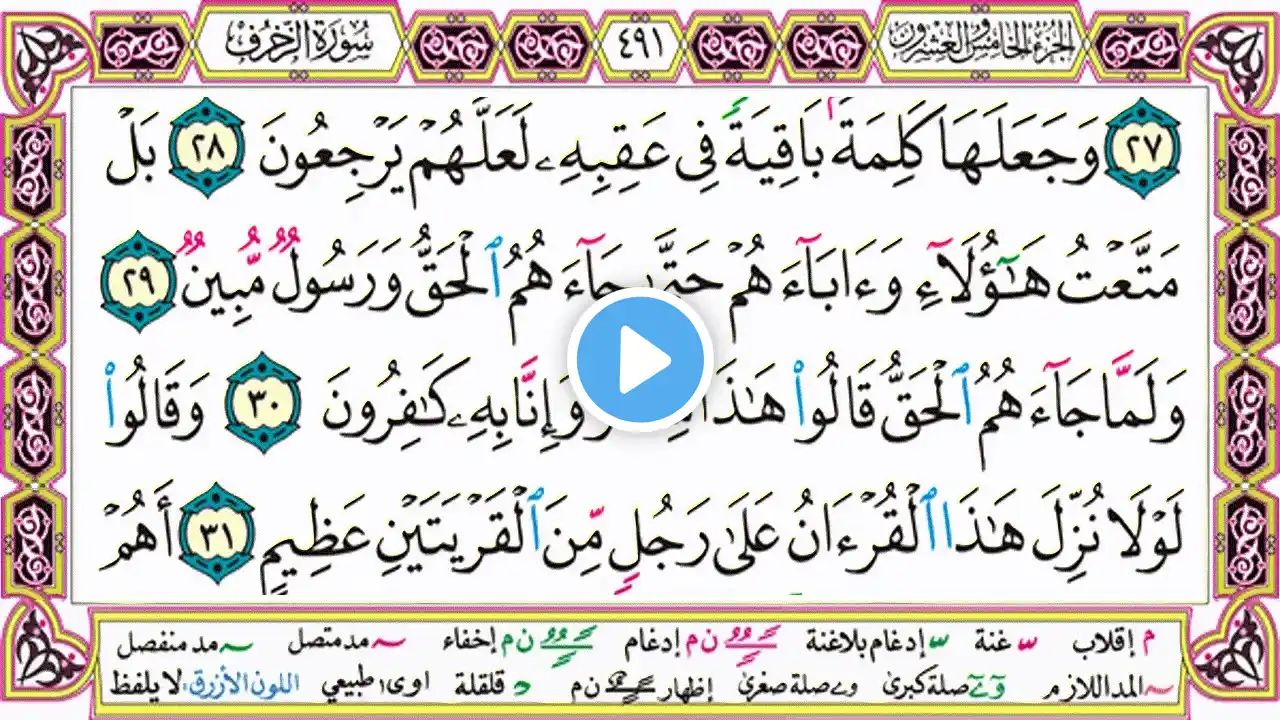 سورة الزخرف ٤٩١ الجزء الخامس والعشرون
٢٧ وَجَعَلَهَا كَلِمَةَۢ بَاقِيَةٗ فِى عَقِبِهِۦ لَعَلَّهُمْ يَرْجِعُونَ ٢٨ بَلْ
مَتَّعْتُ هَـٰٓؤُلَآءِ وَءَابَآءَهُمْ حَتَّىٰ جَآءَهُمُ ٱلْحَقُّ وَرَسُولٌ مُّبِينٌ ٢٩
وَلَمَّا جَآءَهُمُ ٱلْحَقُّ قَالُوا۟ هَـٰذَا وَإِنَّا بِهِۦ كَـٰفِرُونَ ٣٠ وَقَالُوا۟
لَوْلَا نُزِّلَ هَـٰذَا ٱلْقُرْءَانُ عَلَىٰ رَجُلٍ مِّنَ ٱلْقَرْيَتَيْنِ عَظِيمٍ ٣١ أَهُمْ
م إقلاب غنة إدغام بلاغنة ن م إدغام ن م إخفاء مد متصل مد منفصل
المد اللازم صلة كبرى وے صلة صغرى إظهار ن م قلقلة اوى طبيعي اللون الأزرق: لا يلفظ